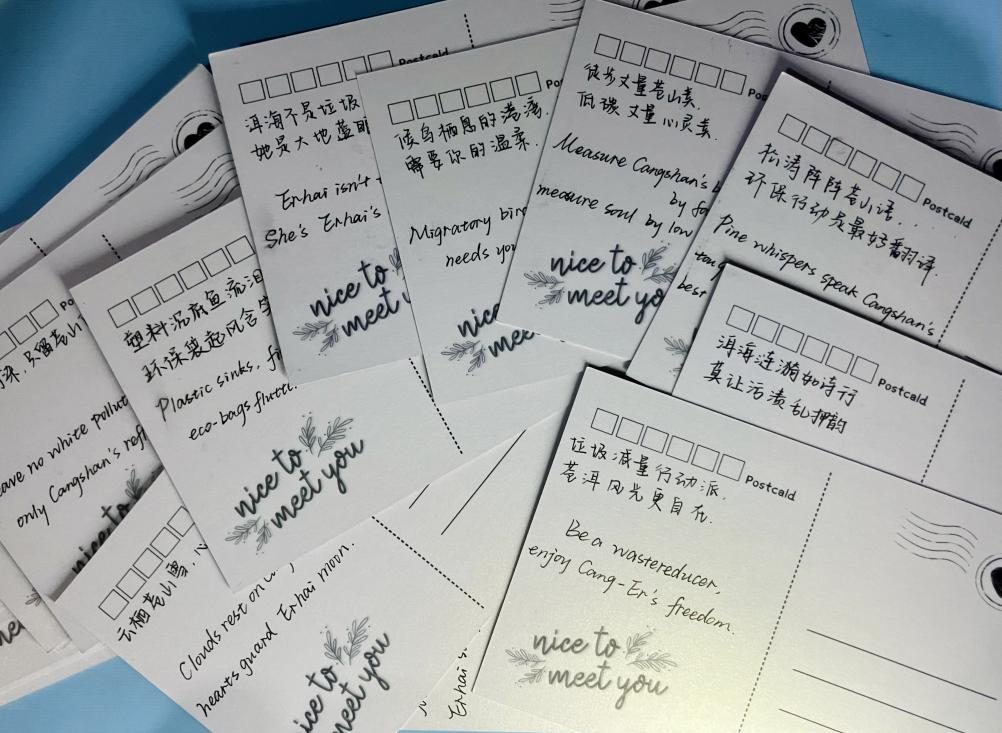 Postcald
洱海不是垃圾
她是大地蓝眼
Erhai isn't
She's Erhai's
nice to
meet
候鸟栖息的港湾,
需要你的温柔.
Migratory
needs
nice
mee
Postcald
徒步丈量苍山素.
低碳丈量心灵素.
Measure Cangshan's
by
measure soul by low
nice to
meet yo
best
Postcald
松涛阵阵苍山语,
环保行动是最好翻译.
Pine whispers speak Cangshan's
Postcald
洱海涟漪如诗行
莫让污渍乱押韵
Postcald
垃圾减量行动派,
苍洱风光更自在.
Be a wastereducer,
enjoy Cang-Er's freedom.
nice to
meet you
塑料沉底鱼流泪
环保袋起风含笑
Plastic sinks,
eco-bags
nice to
meet you
no white
only Cangshan's
云栖苍山雪,
Clouds rest on
hearts guard Erhai moon.
nice to
meet you
Erhai's